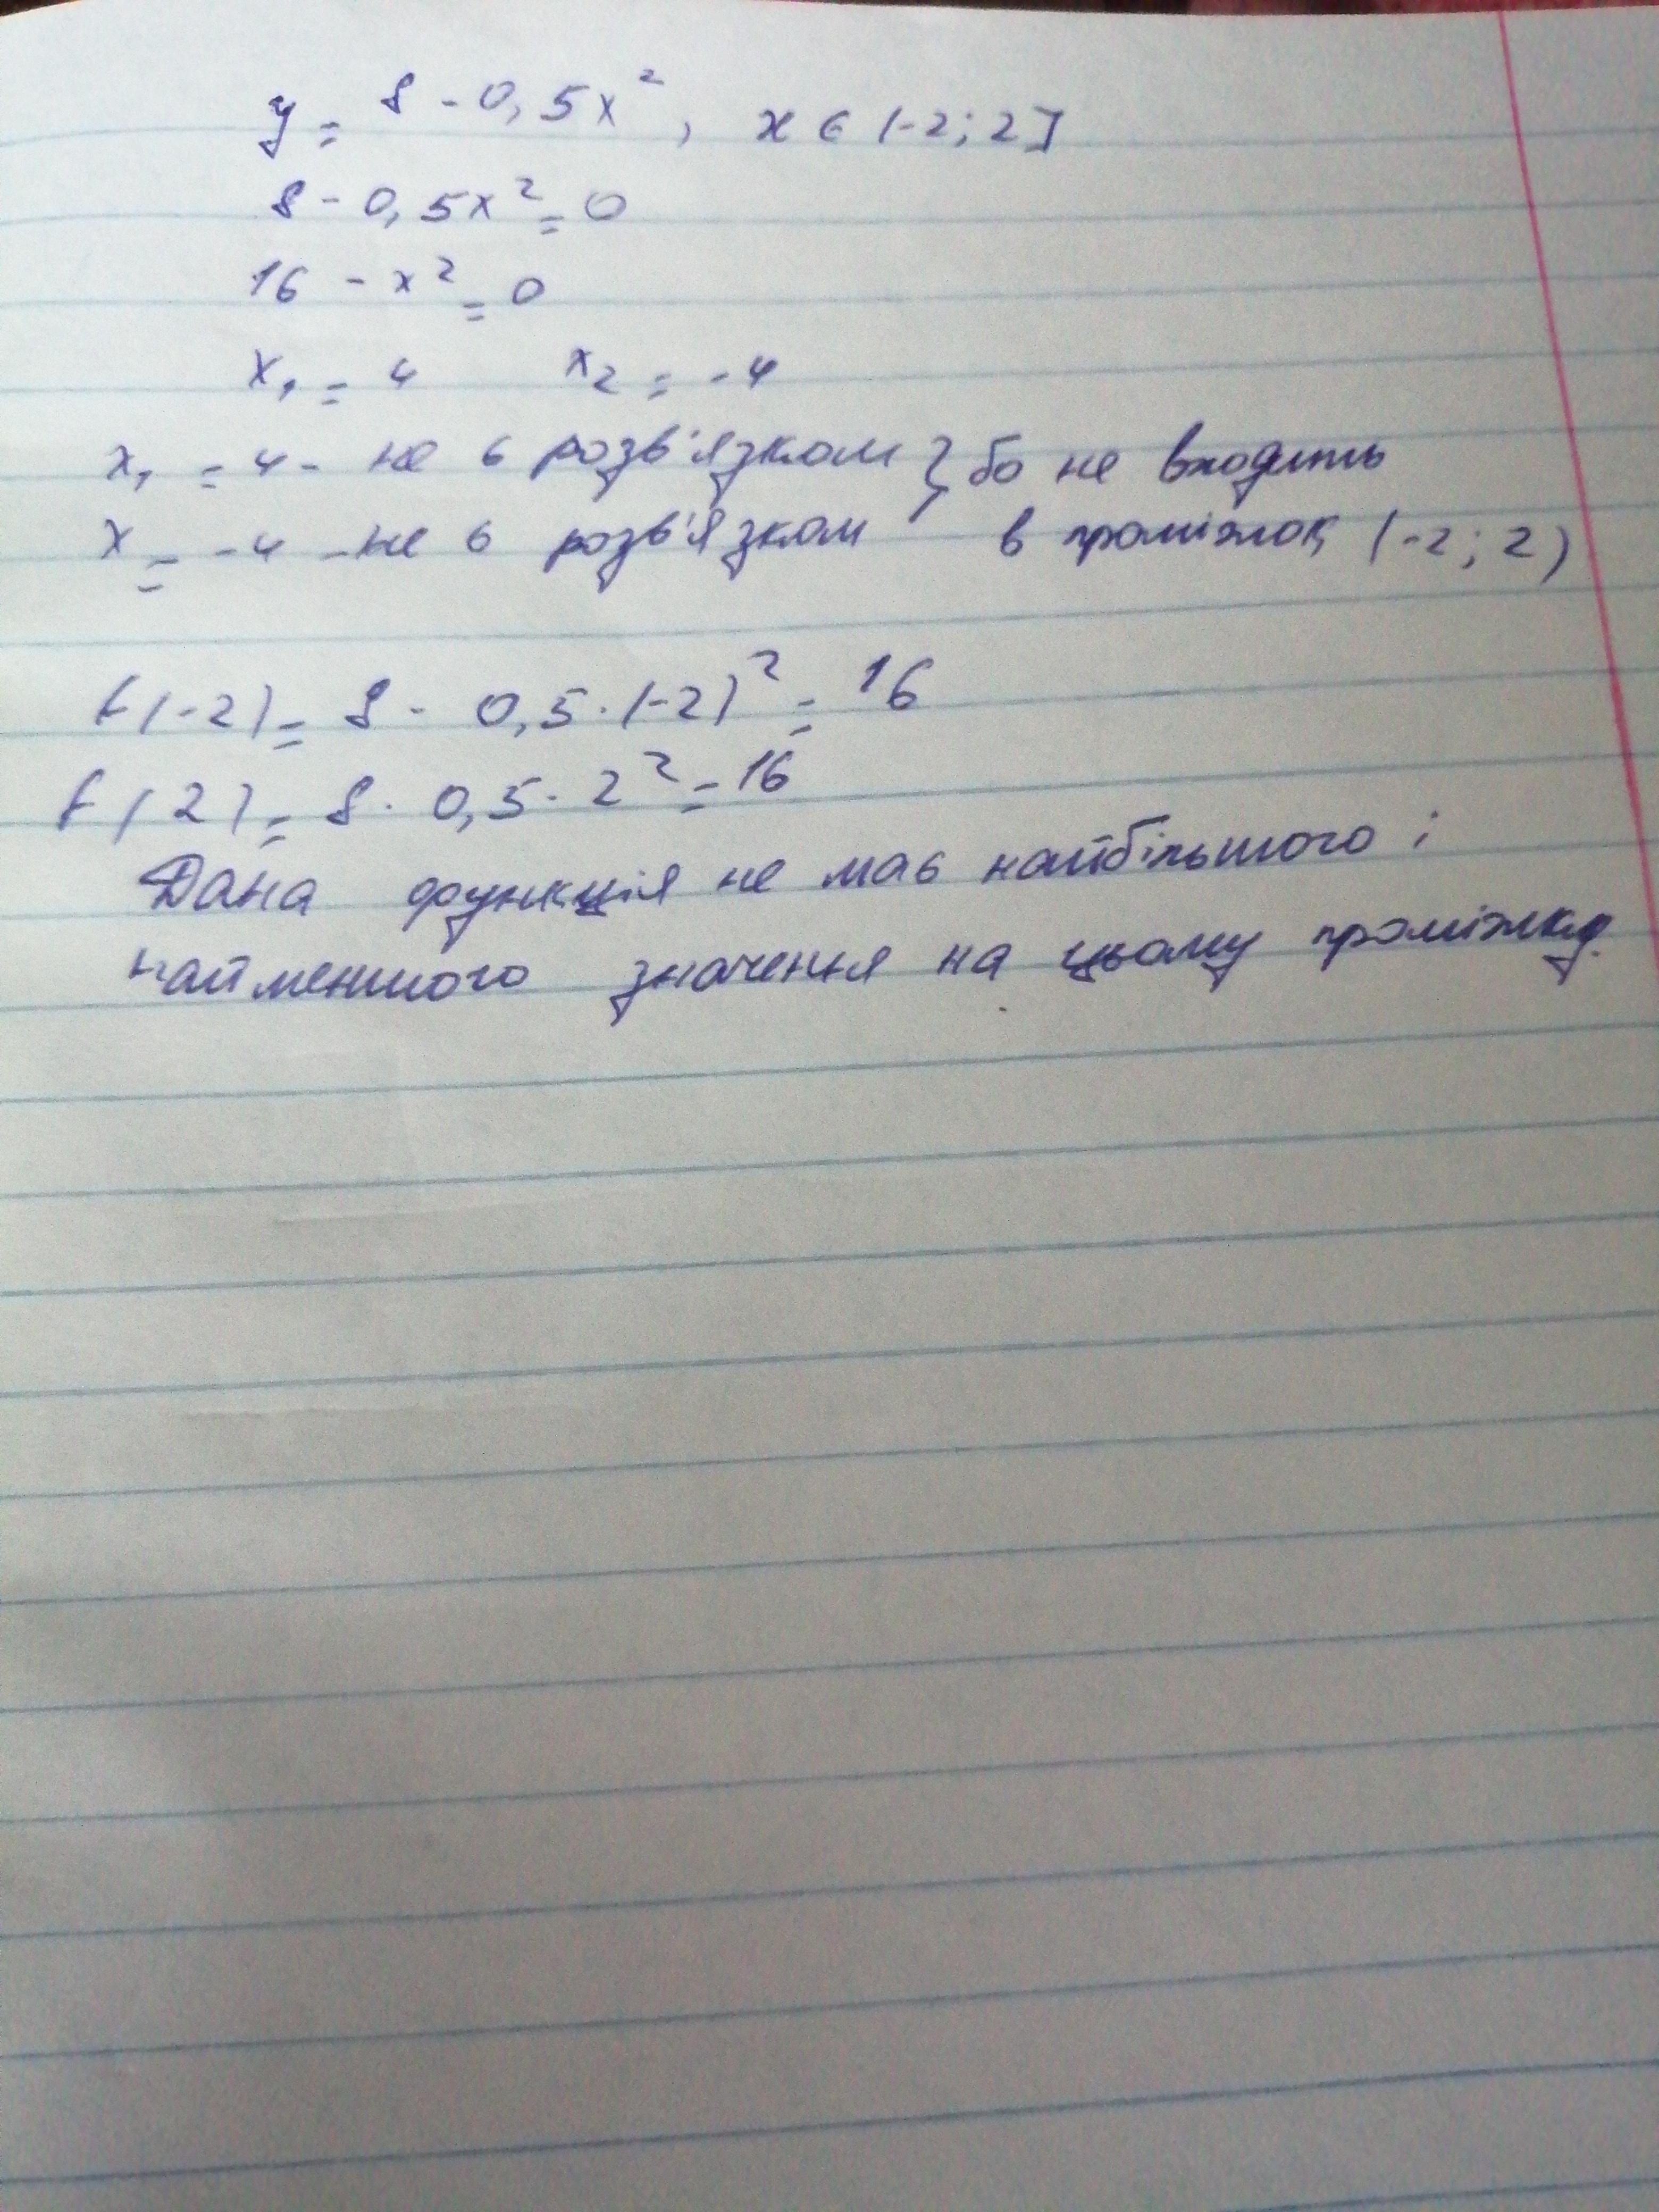 y = 8 - 0,5x², x ∈ (-2; 2]
8 - 0,5x² = 0
16 - x² = 0
x₁ = 4 x₂ = -4
x₁ = 4 - не є розв'язком } бо не входить
x = -4 - не є розв'язком в проміжок (-2; 2)
f(-2) = 8 - 0,5·(-2)² = 16
f(2) = 8 - 0,5·2² = 16
Дана функція не має найбільшого і
найменшого значення на цьому проміжку.